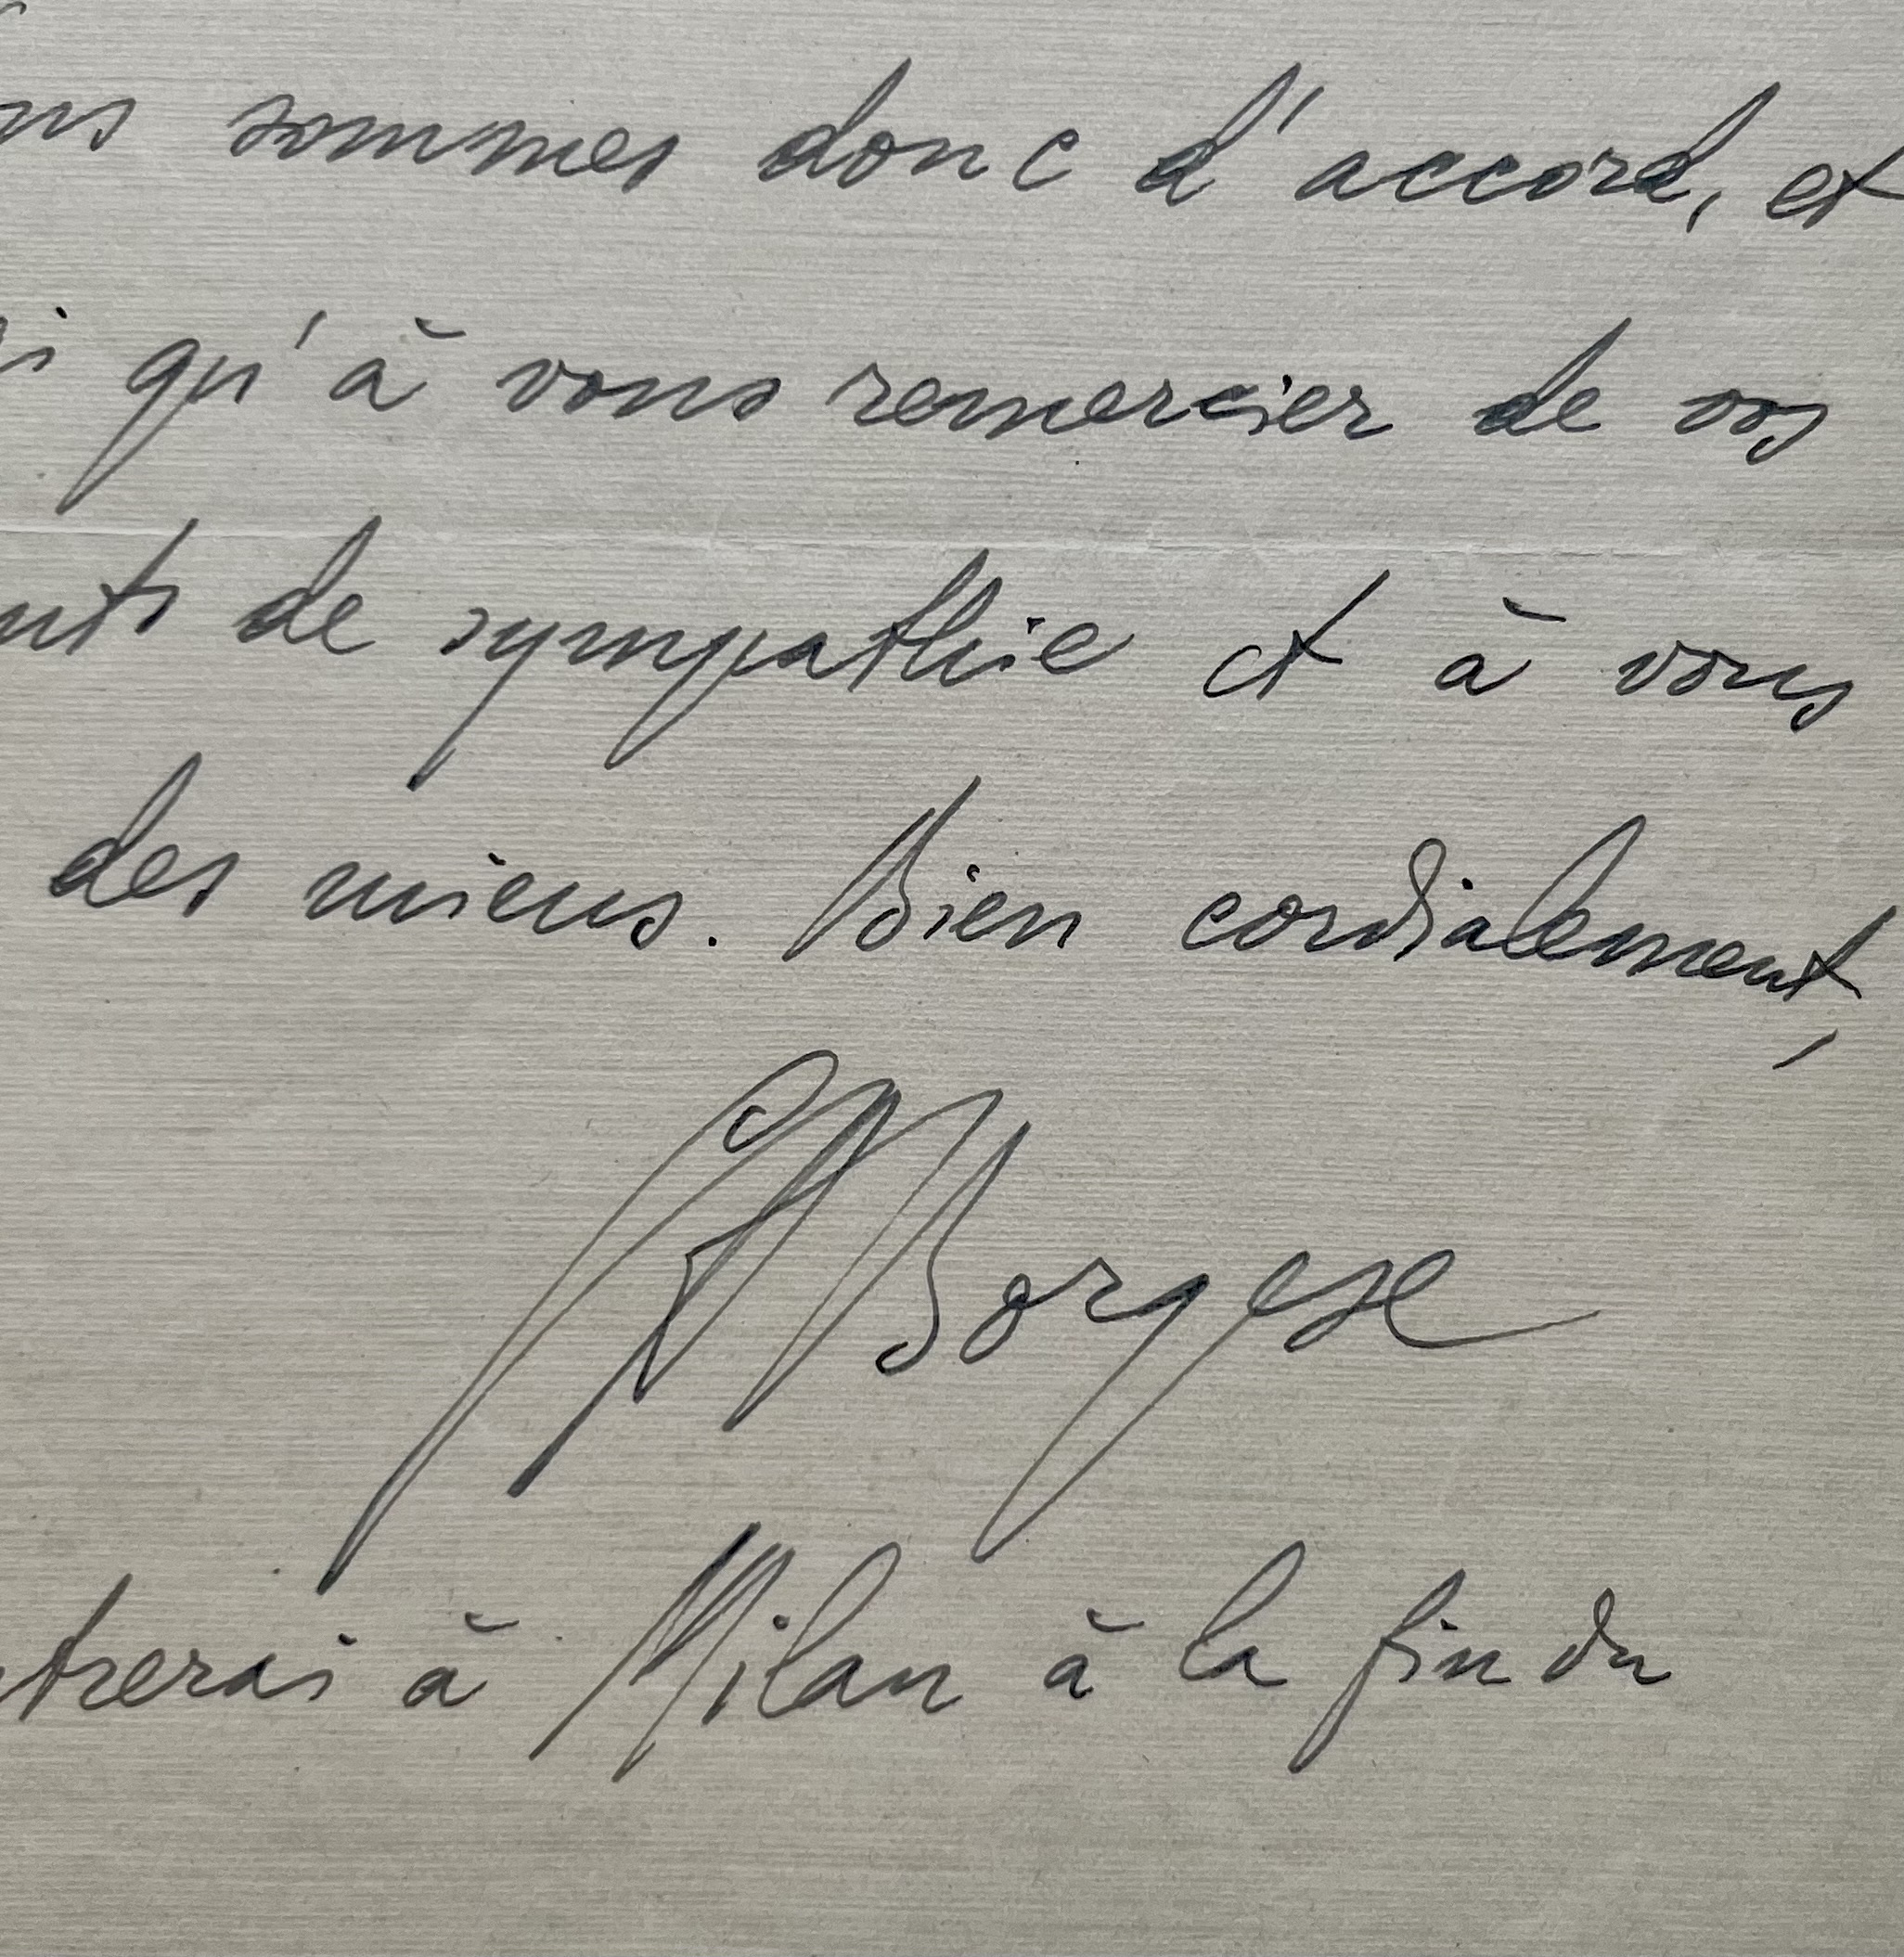 ns sommes donc d'accord, et
i qu'à vous remercier de vos
nts de sympathie et à vous
des miens. Bien cordialement,
Borgese
trerai à Milan à la fin du